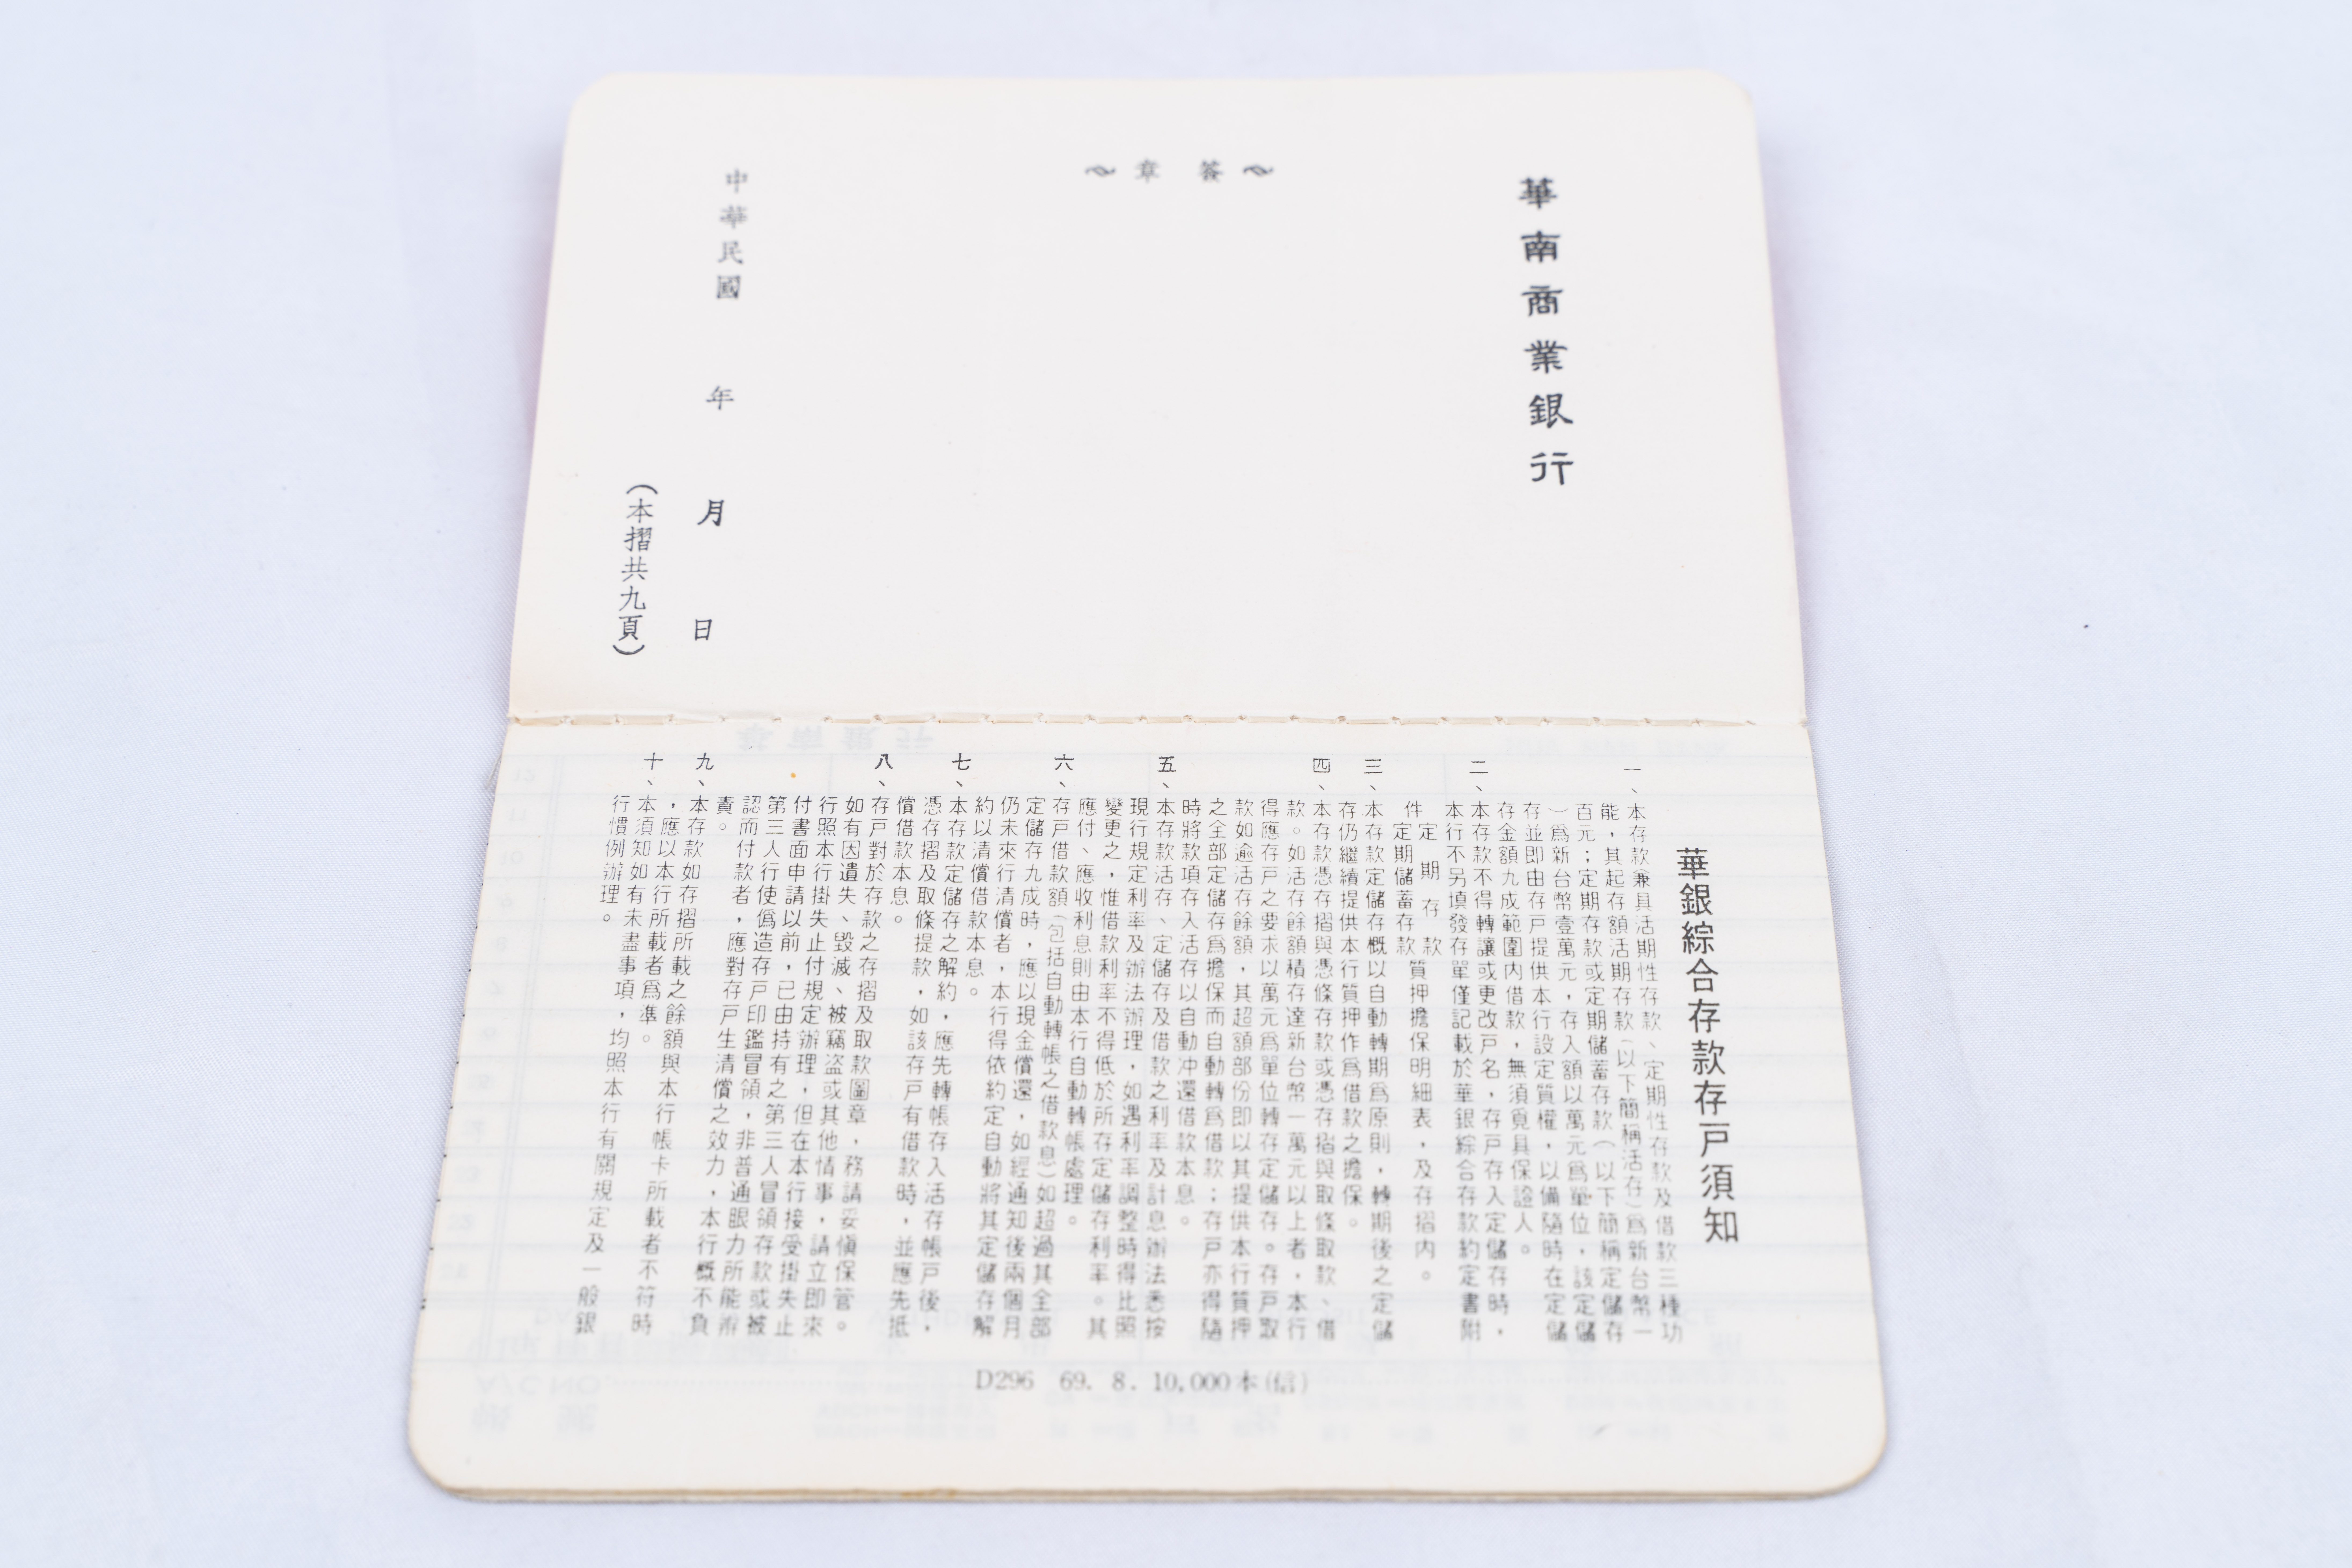 華南商業銀行
簽章
中華民國 年 月 日
（本摺共九頁）
華銀綜合存款存戶須知
一、本存款兼具活期性存款、定期性存款及借款三種功
能，其起存額活期存款（以下簡稱活存）爲新台幣一
百元；定期存款或定期儲蓄存款（以下簡稱定儲存
）爲新台幣壹萬元，存入額以萬元爲單位，該定儲
存並即由存戶提供本行設定質權，以備隨時在定儲
存金額九成範圍內借款，無須覓具保證人。
二、本存款不得轉讓或更改戶名，存戶存入定儲存時，
本行不另填發存單僅記載於華銀綜合存款約定書附
件定期存款定期儲蓄存款質押擔保明細表，及存摺內。
三、本存款定儲存概以自動轉期爲原則，轉期後之定儲
存仍繼續提供本行質押作爲借款之擔保。
四、本存款憑存摺與憑條存款或憑存摺與取條取款、借
款。如活存餘額積存達新台幣一萬元以上者，本行
得應存戶之要求以萬元爲單位轉存定儲存。存戶取
款如逾活存餘額，其超額部份即以其提供本行質押
之全部定儲存爲擔保而自動轉爲借款；存戶亦得隨
時將款項存入活存以自動冲還借款本息。
五、本存款活存、定儲存及借款之利率及計息辦法悉按
現行規定利率及辦法辦理，如遇利率調整時得比照
變更之，惟借款利率不得低於所存定儲存利率。其
應付、應收利息則由本行自動轉帳處理。
六、存戶借款額（包括自動轉帳之借款息）如超過其全部
定儲存九成時，應以現金償還，如經通知後兩個月
仍未來行清償者，本行得依約定自動將其定儲存解
約以清償借款本息。
七、本存款定儲存之解約，應先轉帳存入活存帳戶後，
憑存摺及取條提款，如該存戶有借款時，並應先抵
償借款本息。
八、存戶對於存款之存摺及取款圖章，務請妥愼保管。
如有因遺失、毀滅、被竊盜或其他情事，請立即來
行照本行掛失止付規定辦理，但在本行接受掛失止
付書面申請以前，已由持有之第三人冒領存款或被
第三人行使僞造存戶印鑑冒領，非普通眼力所能辨
認而付款者，應對存戶生清償之效力，本行概不負
責。
九、本存款如存摺所載之餘額與本行帳卡所載者不符時
，應以本行所載者爲準。
十、本須知如有未盡事項，均照本行有關規定及一般銀
行慣例辦理。
D296 69. 8. 10,000本(信)